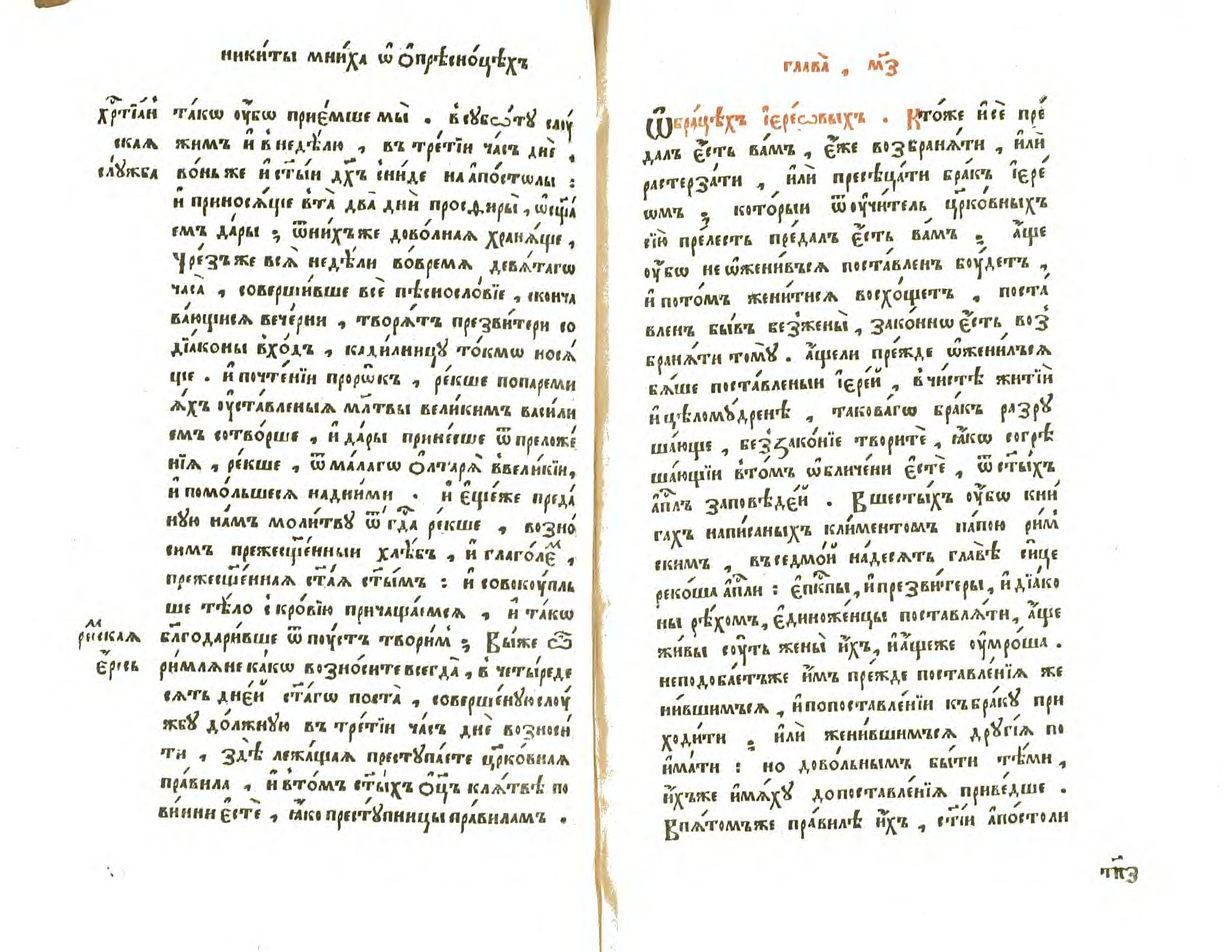 ники́ты мни́ха ѡ҆ ѻ҆прѣсно́цѣхъ
хр҃тїа́н
ская
слу́жба
та́кѡ ᲂу҆́бо прие́мше мы̀ . в сꙋбѡ́тꙋ слꙋ́
жимъ и҆ в недѣ́лю , въ тре́тїи ча́съ днѐ ,
во́ньже и҆ ст҃ы́и дх҃ъ сни́де на а҆по́столы :
и҆ принося́ще в та̀ два̀ дни̑ просфиры̀ , ѡ҆сщ҃а́
емъ да́ры ; ѿ ни́хъже дово́лная храня́ще ,
чре́зъже вся̀ недѣ́ли во́время девя́тагѡ
часа̀ , соверши́вше всѐ пѣснослові́е , сконча
ва́ющися вече́рни , творя́тъ презви́тери со
дїа́коны в хо́дъ , кади́лницꙋ то́кмѡ нося́
ще . и҆ почте́нїи проро́къ , ре́кше попареми
я́хъ ᲂу҆ста́вленыя мл҃твы вели́кимъ васи́ли
емъ сотво́рше , и҆ да́ры прине́сше ѿ преложе́
нїя , ре́кше , ѿ ма́лагѡ ѻ҆лтаря̀ в вели́кїи ,
и҆ помо́льшеся над ни́ми . и҆ є҆ще́же преда́
ную на́мъ моли́твꙋ ѿ гд҃а ре́кше , возно́
симъ прежесщ҃е́нныи хлѣ́бъ , и҆ глаго́лемъ ,
прежесщ҃е́нная ст҃а́я ст҃ы́мъ : и҆ совокꙋ́пль
ше тѣ́ло с кро́вїю причаща́емся , и҆ та́кѡ
ри́мская
є҆́ресь
благодари́вше ѿпꙋ́стъ твори́м ; Вы́же ѽ
ри́мляне ка́кѡ возно́сите всегда̀ , в четы́реде
ся́ть дне́й ст҃а́гѡ поста̀ , соверше́нꙋю слꙋ́
жбꙋ до́лжную въ тре́тїи ча́съ днѐ возноси́
ти , здѣ̀ лежа́щая престꙋпа́ете цр҃ко́вная
пра́вила , и҆ в то́мъ ст҃ы́хъ ѻ҆ц҃ъ кля́твѣ по
ви́нни є҆стѐ , ꙗ҆́ко престꙋ́пницы пра́виламъ .
глава̀ , м҃з
Ѡ҆ бра́цѣхъ і҆ере́ѡвыхъ . Кто́же и҆ сѐ пре́
далъ є҆́сть ва́мъ , є҆́же возбраня́ти , и҆лѝ
растерза́ти , и҆лѝ пресѣца́ти бра́къ і҆ере́
ѡмъ ; кото́рыи ѿ ᲂу҆чи́тель цр҃ко́вныхъ
сїю̀ пре́лесть пре́далъ є҆́сть ва́мъ ; а҆́ще
ᲂу҆́бо не ѡ҆жени́вься поста́вленъ бꙋ́детъ ,
и҆ пото́мъ жени́тися восхо́щетъ , поста́
вленъ бы́въ без жены̀ , зако́ннѡ є҆́сть воз
браня́ти томꙋ̀ . а҆́щели пре́жде ѡ҆жени́лься
бя́ше поста́вленыи і҆ере́й , в чи́стѣ житїѝ
и҆ цѣломꙋ́дренѣ , такова́гѡ бра́къ разрꙋ
ша́юще , беззако́нїе творитѐ , ꙗ҆́кѡ согрѣ
ша́ющїи в то́мъ ѡ҆бличе́ни є҆стѐ , ѿ ст҃ы́хъ
а҆п҃лъ за́повѣдей . В шесты́хъ ᲂу҆́бо кни́
гахъ напи́саныхъ кли́ментомъ па́пою ри́м
скимъ , въ седмо́й на́десять главѣ̀ си́це
реко́ша а҆п҃ли : є҆пк҃пы , и҆ презви́теры , и҆ дїа́ко
ны рѣ́хомъ , є҆диноже́нцы поставля́ти , а҆́ще
жи́вы сꙋ́ть жены̀ и҆́хъ , и҆ а҆́щеже ᲂу҆мро́ша .
не подоба́етъже и҆̀мъ пре́жде поставле́нїя же
ни́вшимъся , и҆ по поставле́нїи къ бра́кꙋ при
ходи́ти ; и҆лѝ жени́вшимъся дрꙋгі́я по
и҆ма́ти : но дово́льнымъ бы́ти тѣ́ми ,
и҆́хъже и҆мя́хꙋ до поставле́нїя приве́дше .
В пя́томъже пра́вилѣ и҆́хъ , ст҃і́и а҆по́столи
тп҃з